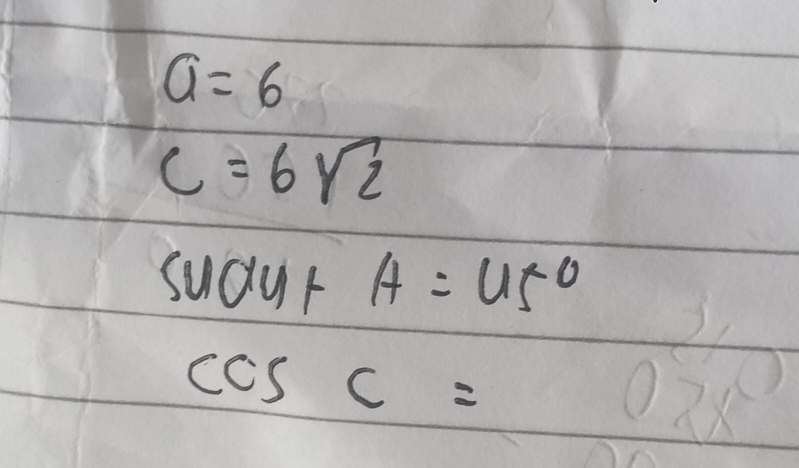 a = 6
c = 6√2
sudut A = 45°
cos C =